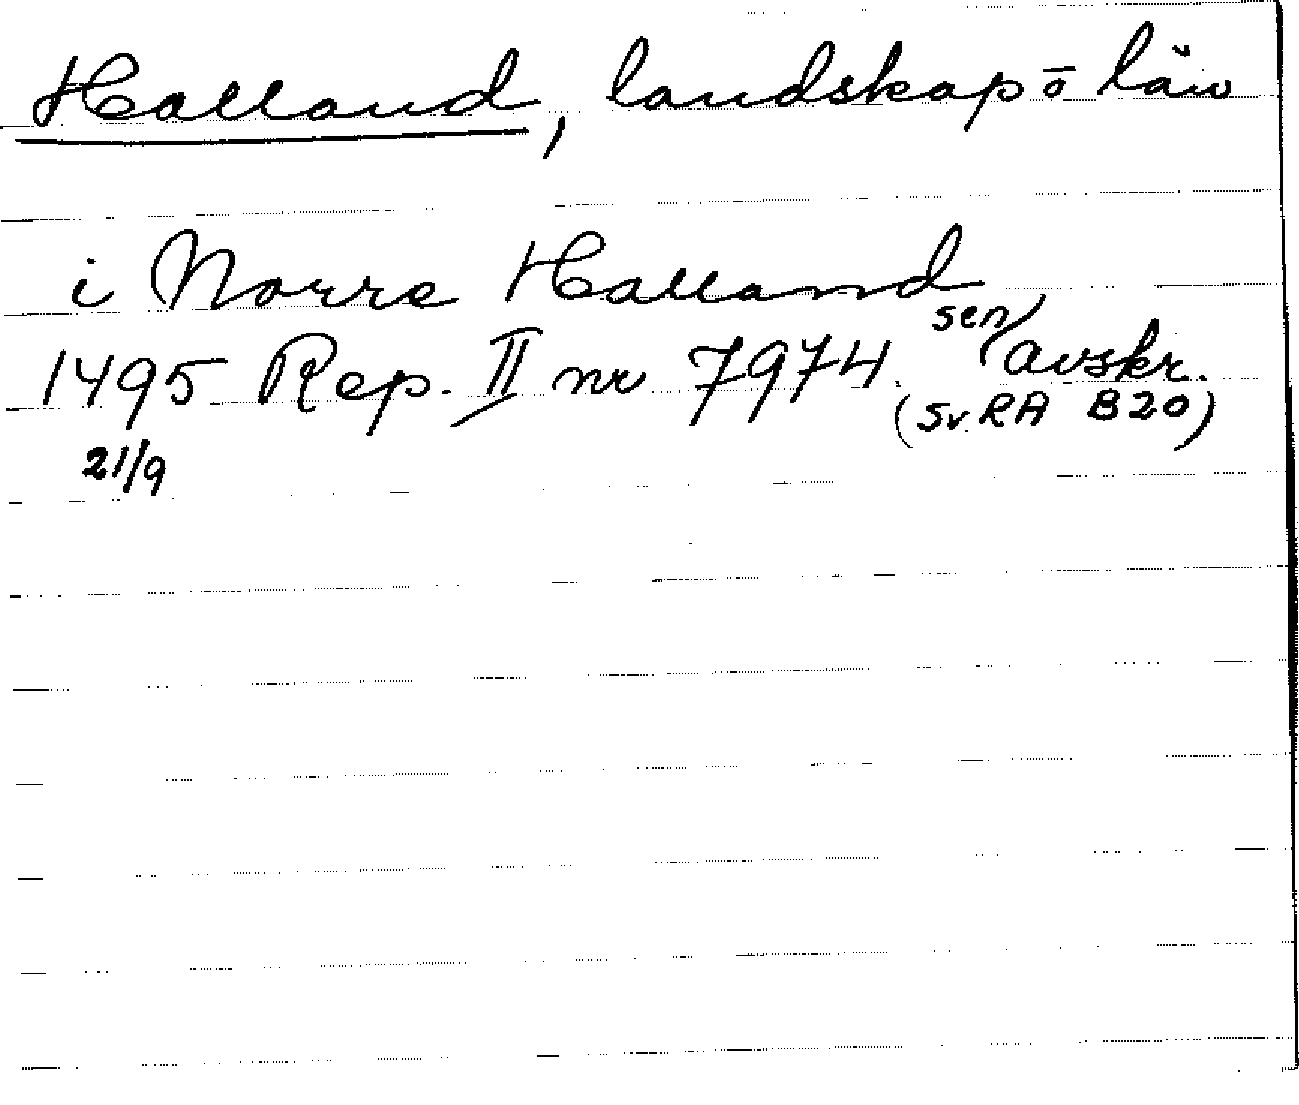 Halland, landskap o län
i Norre Halland
1495 Rep. II nr 7974 sen avskr.
21/9 (Sv. RA B20)